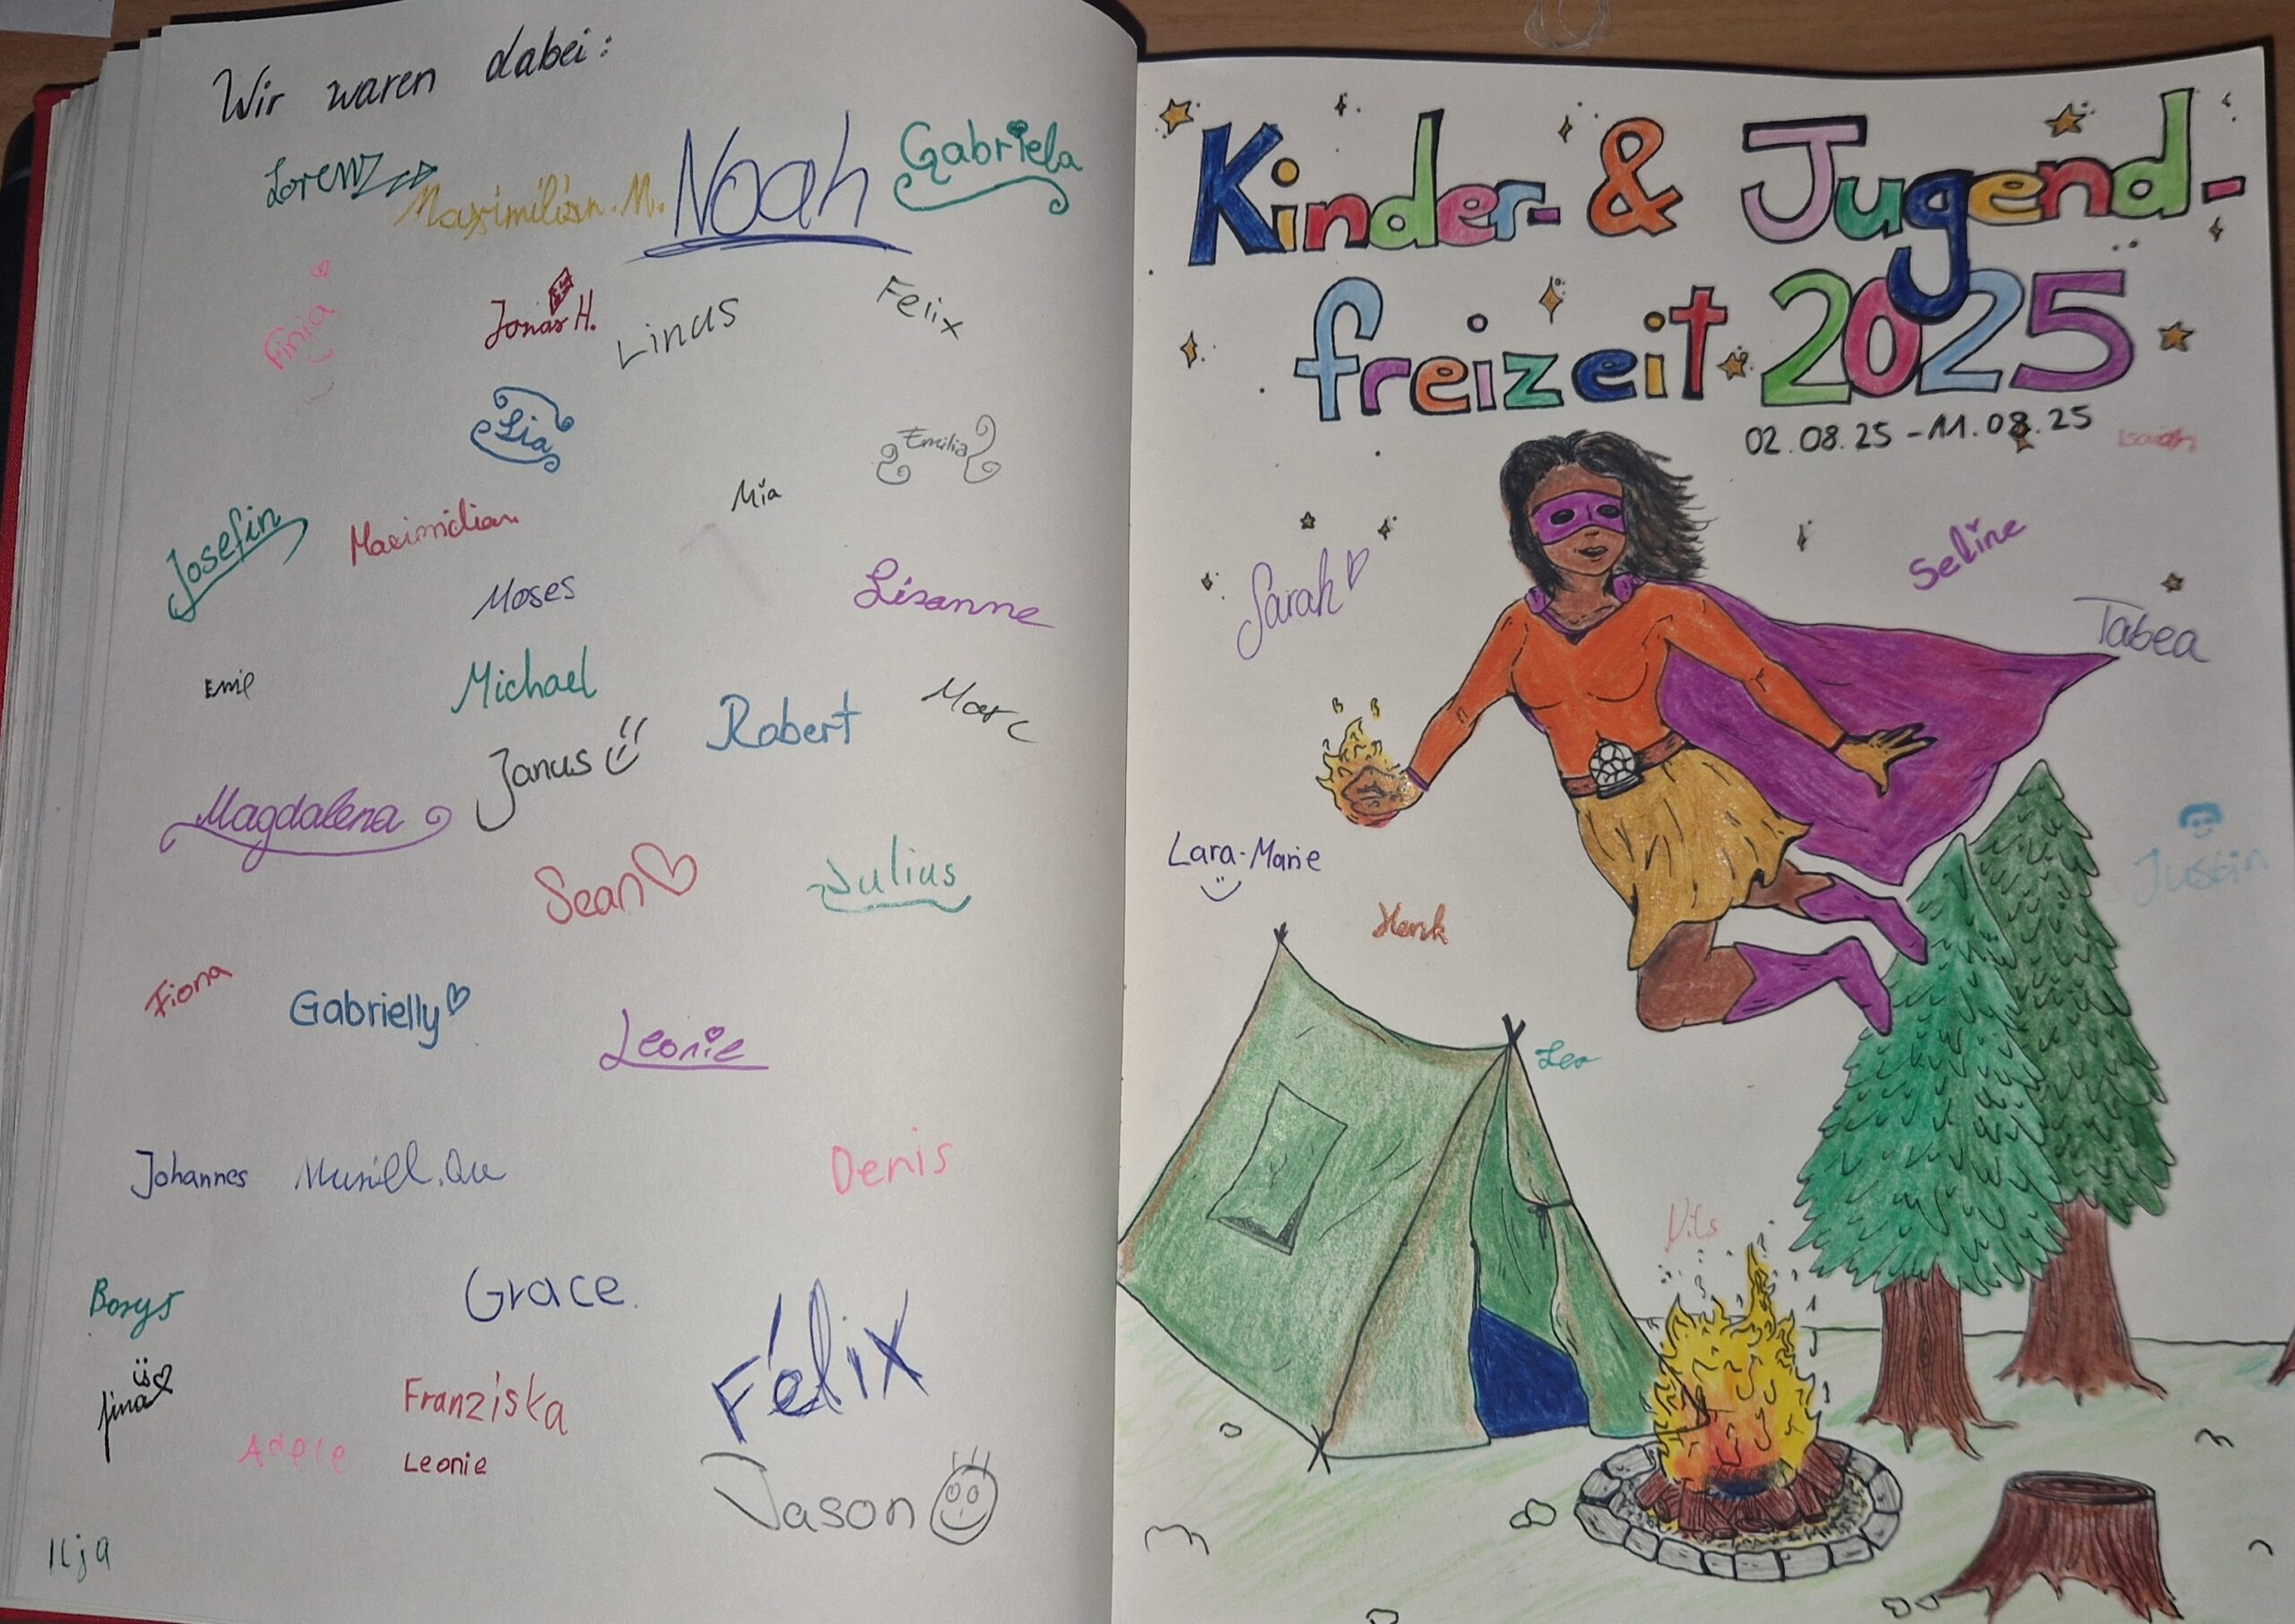 Wir waren dabei:
Lorenz
Maximilian. M.
Noah
Gabriela
Finja
Jonas H.
Linus
Felix
Lia
Emilia
Josefin
Maximilian
Mia
Moses
Lisanne
Emil
Michael
Janus
Robert
Marc
Magdalena
Sean
Julius
Fiona
Gabrielly
Leonie
Johannes
Denis
Borys
Grace.
Felix
Jina
Franziska
Adele
Leonie
Jason
Ilja
Kinder- & Jugend-
freizeit 2025
02.08.25 - 11.08.25
Isaiah
Sarah
Seline
Tabea
Lara-Marie
Henk
Justin
Leo
Nils